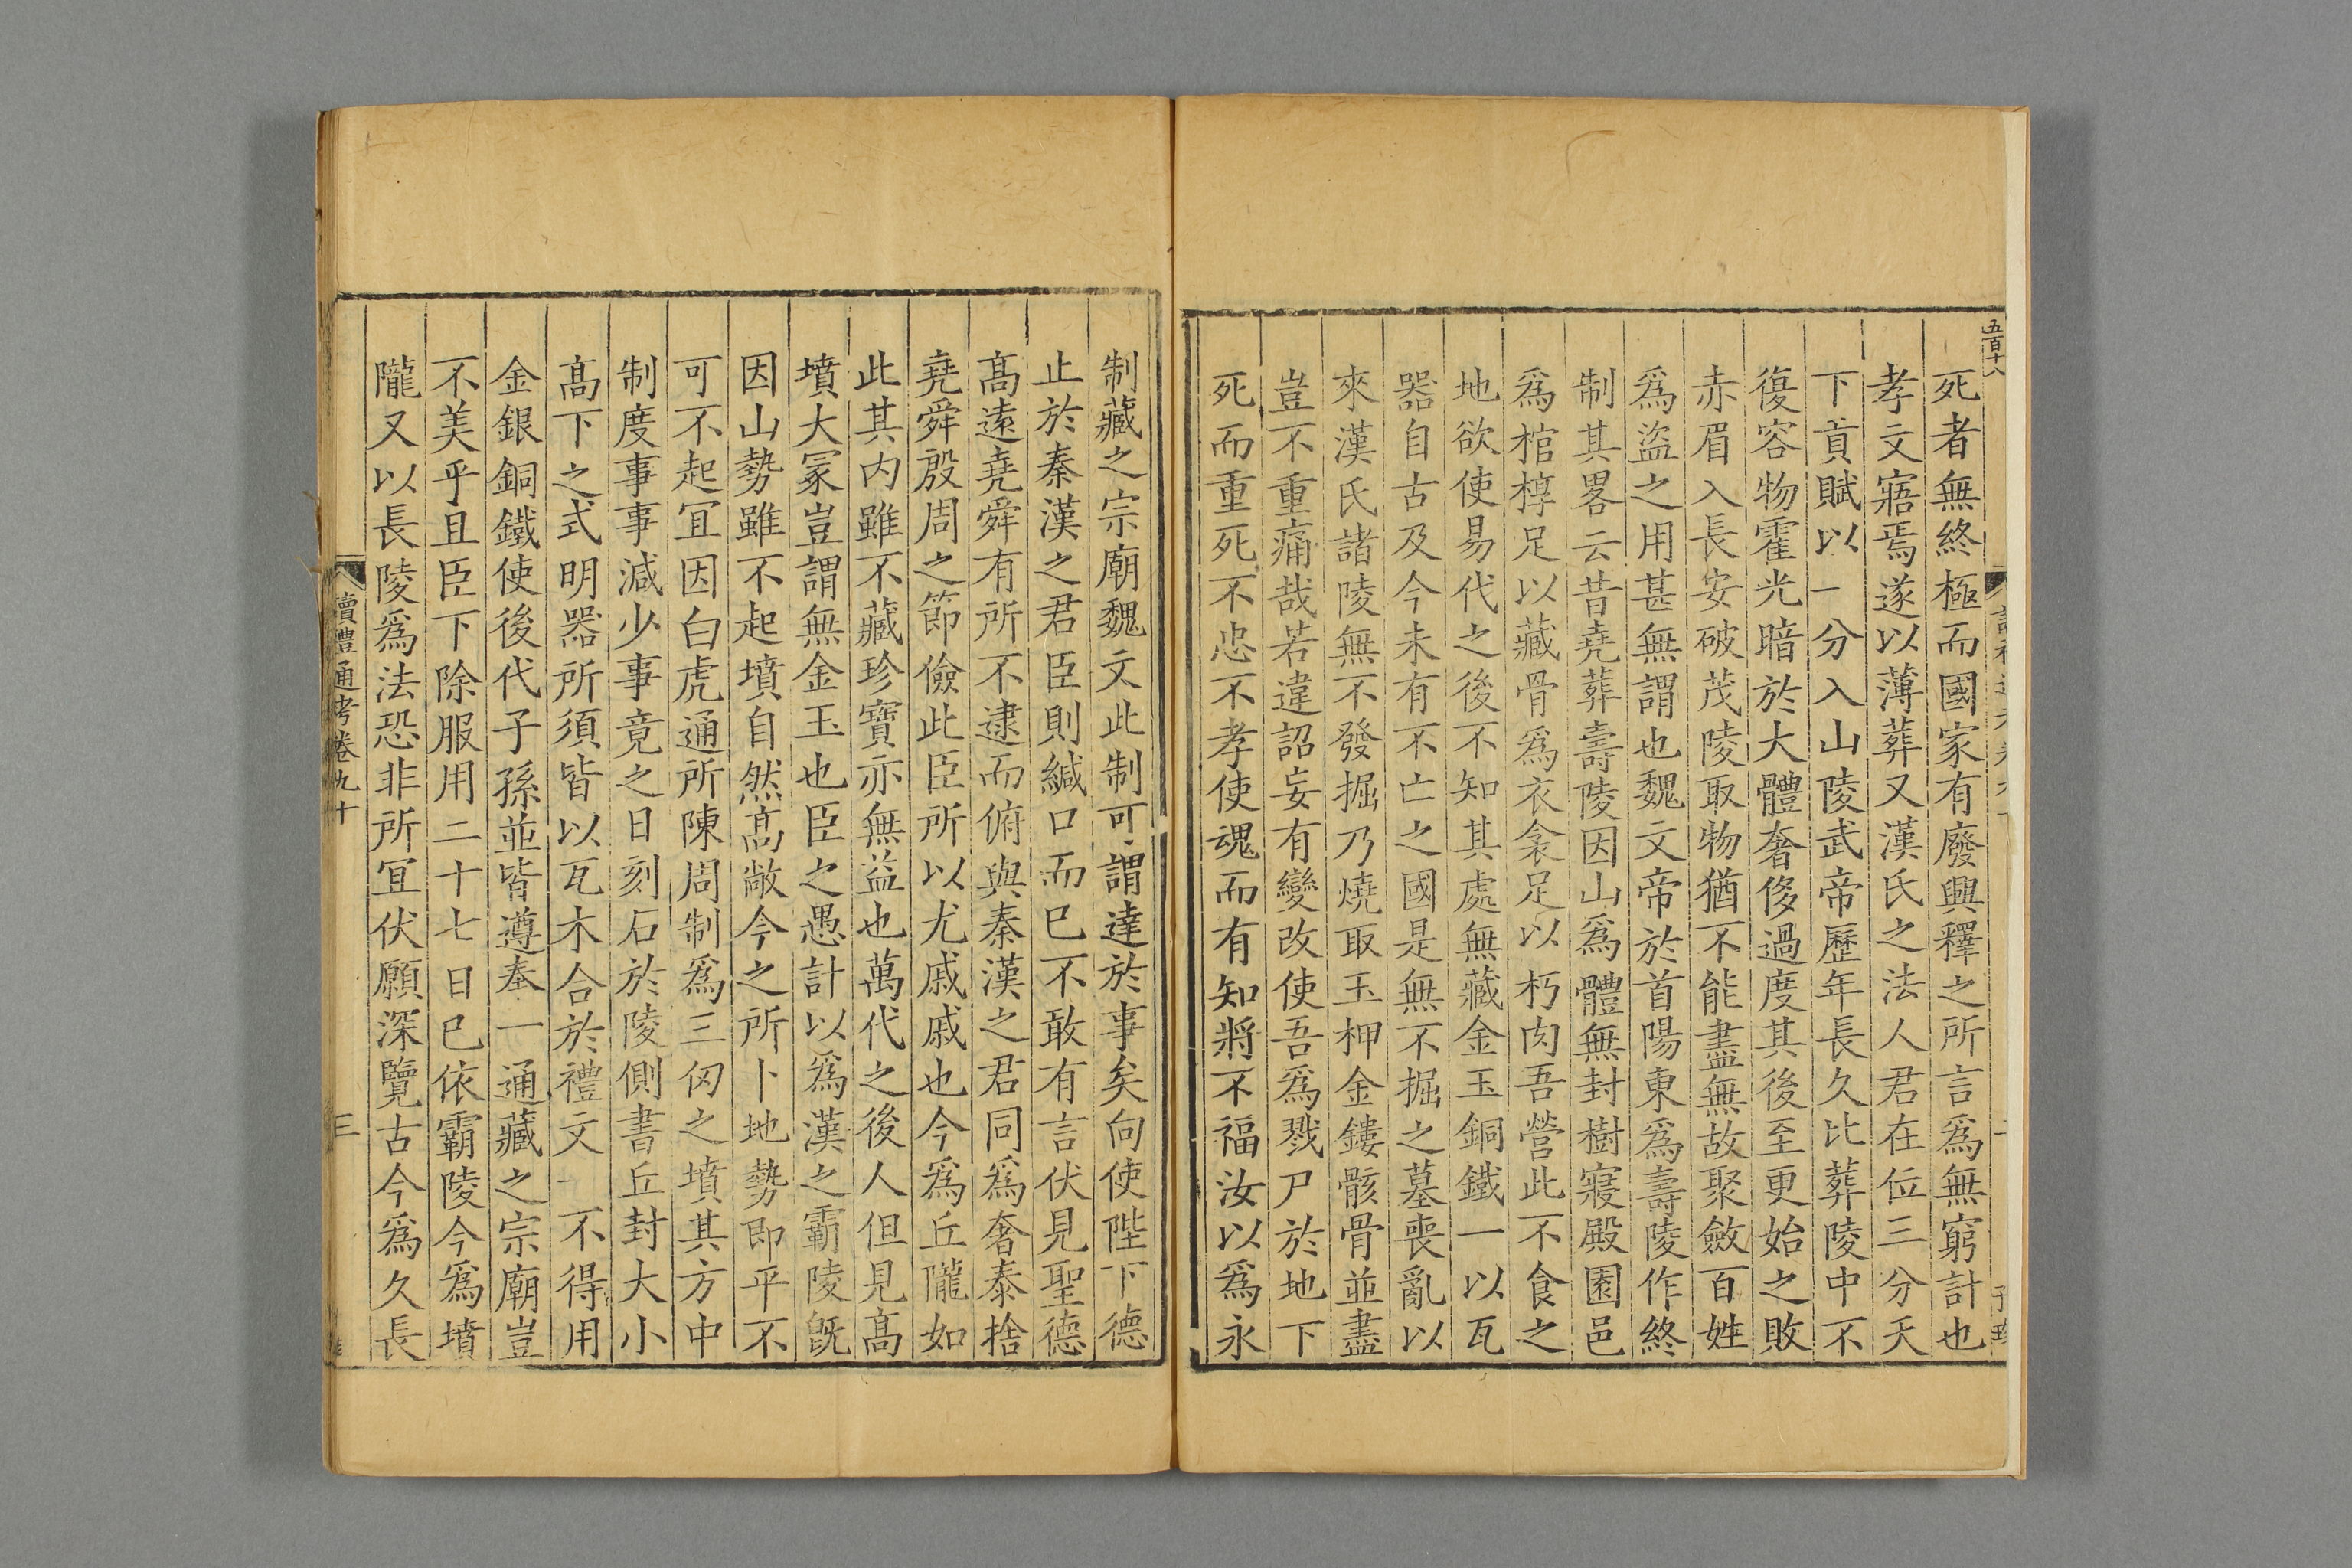 五百十八
死者無終極而國家有廢興釋之所言爲無窮計也
孝文寤焉遂以薄葬又漢氏之法人君在位三分天
下貢賦以一分入山陵武帝歷年長久比葬陵中不
復容物霍光暗於大體奢侈過度其後至更始之敗
赤眉入長安破茂陵取物猶不能盡無故聚斂百姓
爲盜之用甚無謂也魏文帝於首陽東爲壽陵作終
制其畧云昔堯葬壽陵因山爲體無封樹寢殿園邑
爲棺椁足以藏骨爲衣衾足以朽肉吾營此不食之
地欲使易代之後不知其處無藏金玉銅鐵一以瓦
器自古及今未有不亡之國是無不掘之墓喪亂以
來漢氏諸陵無不發掘乃燒取玉柙金鏤骸骨並盡
豈不重痛哉若違詔妄有變改使吾爲戮尸於地下
死而重死不忠不孝使魂而有知將不福汝以爲永
制藏之宗廟魏文此制可謂達於事矣向使陛下德
止於秦漢之君臣則緘口而已不敢有言伏見聖德
高遠堯舜有所不逮而俯與秦漢之君同爲奢泰捨
堯舜殷周之節儉此臣所以尤戚戚也今爲丘隴如
此其内雖不藏珍寶亦無益也萬代之後人但見高
墳大冢豈謂無金玉也臣之愚計以爲漢之霸陵旣
因山勢雖不起墳自然高敞今之所卜地勢即平不
可不起宜因白虎通所陳周制爲三仞之墳其方中
制度事事減少事竟之日刻石於陵側書丘封大小
高下之式明器所須皆以瓦木合於禮文一不得用
金銀銅鐵使後代子孫並皆遵奉一通藏之宗廟豈
不美乎且臣下除服用二十七日已依霸陵今爲墳
隴又以長陵爲法恐非所宜伏願深覽古今爲久長
讀禮通考卷九十
三